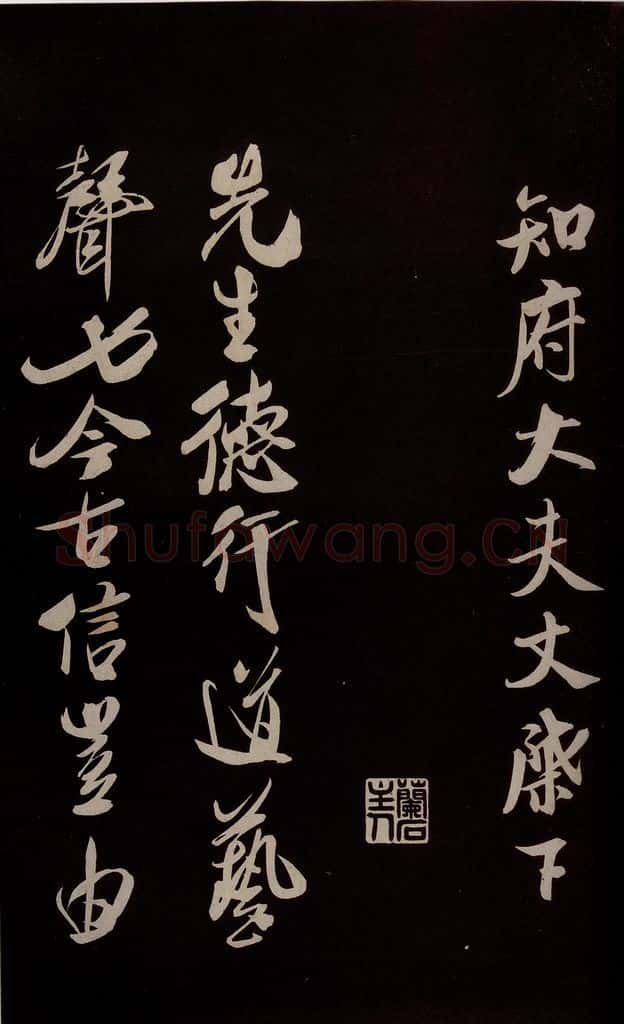 知府大夫丈下
蘭石主人
先生德行道藝
聲今古信豈由
Shufawang.CN